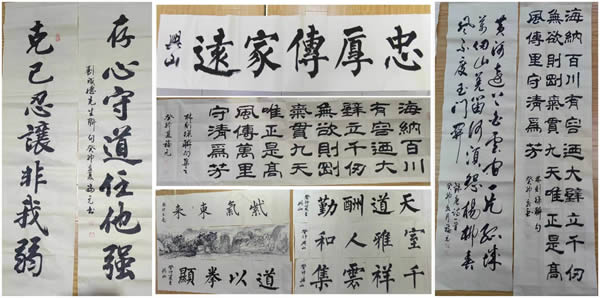 存心守道任他強
克己忍讓非我弱
忠厚傳家遠
興山
海納百川
有容迺大
壁立千仞
無欲則剛
氣貫九天
唯正是高
風傳萬里
守清爲芳
紫氣東來
道以拳顯
天道酬勤
室雅人和
千祥雲集
海納百川有容迺大壁立千仞
無欲則剛氣貫九天唯正是高
風傳萬里守清爲芳
黃河遠上白雲間一片孤城
萬仞山羌笛何須怨楊柳春
風不度玉門關